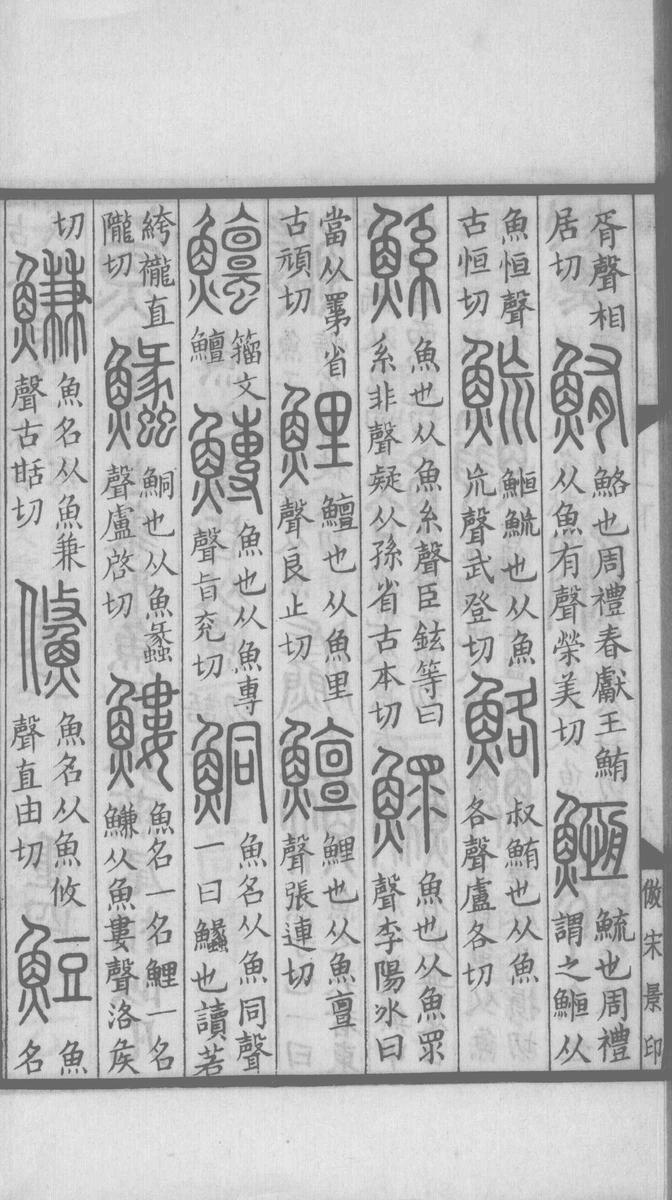 胥聲相居切鮪鮥也周禮春獻王鮪从魚有聲榮美切䱭䱍也周禮謂之䱭从
魚恒聲古恒切䱍䱭䱍也从魚㐬聲武登切鮥叔鮪也从魚各聲盧各切
鯀魚也从魚系聲臣鉉等曰系非聲疑从孫省古本切鰥魚也从魚眔聲李陽冰曰
當从罤省古頑切鯉鱣也从魚里聲良止切鱣鯉也从魚亶聲張連切
籒文鱣鱄魚也从魚專聲旨兖切鮦魚名从魚同聲一曰𩽵也讀若
絝襱直隴切𩽵鮦也从魚蠡聲盧啓切䱾魚名一名鯉一名鰜从魚婁聲洛矦
切鰜魚名从魚兼聲古甛切鯈魚名从魚攸聲直由切䱏魚名
倣宋景印